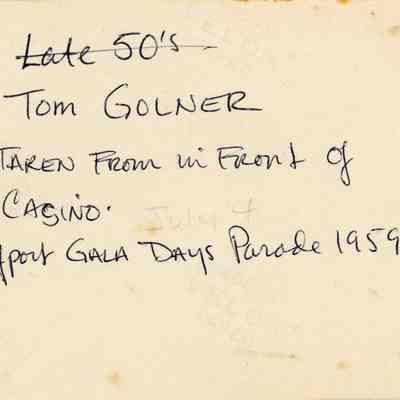 Late 50's
Tom GOLNER
TAKEN From in Front of
CASINO.
July 4
port GALA DAYS Parade 1959